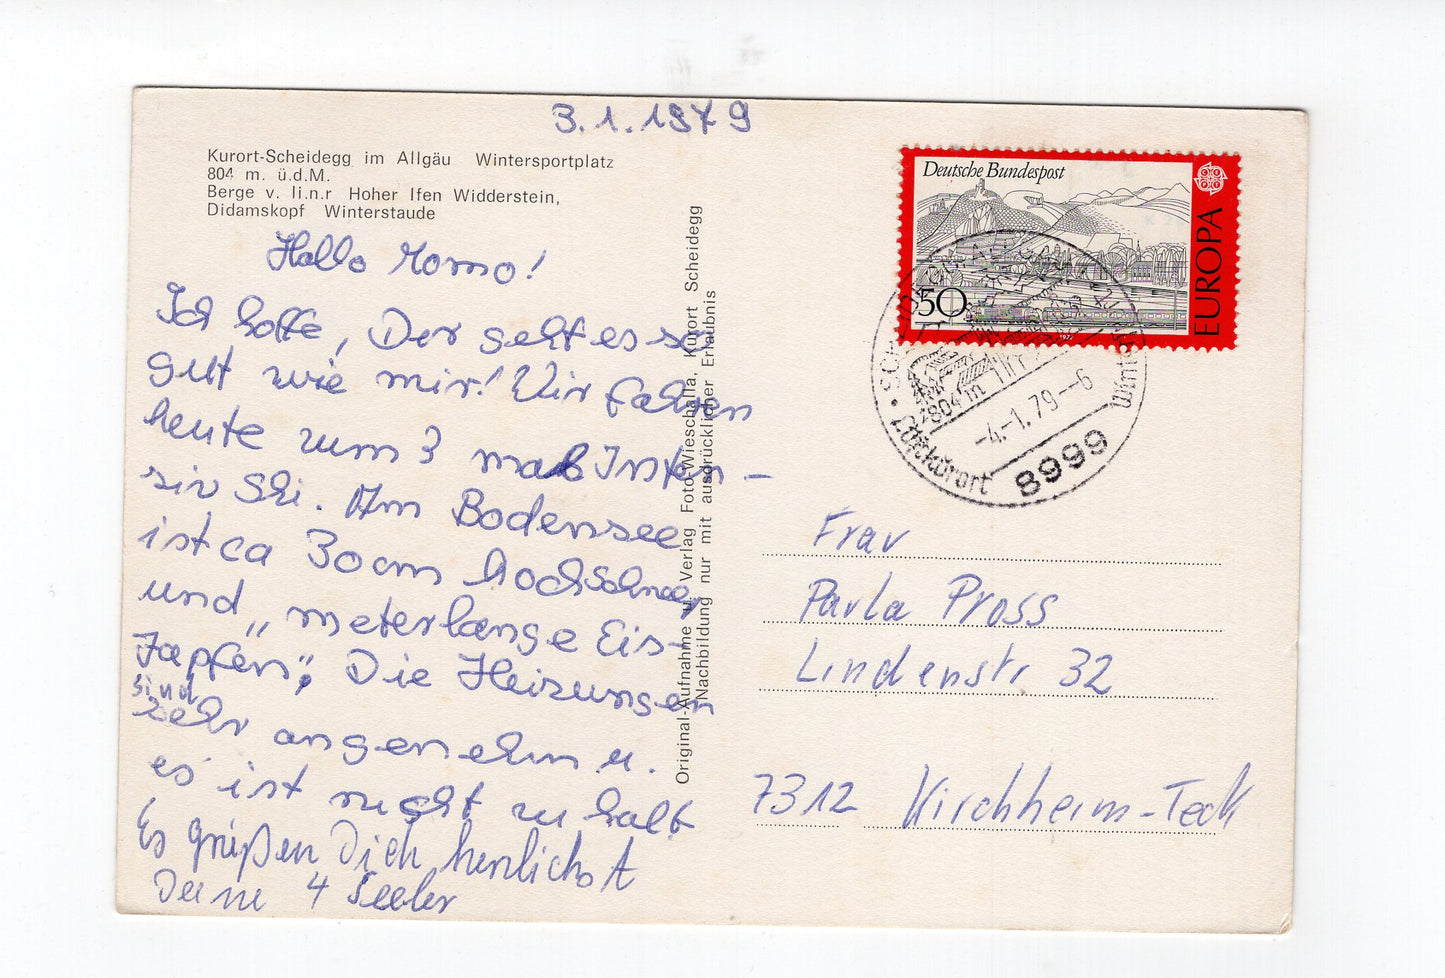 3.1.1979
Kurort-Scheidegg im Allgäu Wintersportplatz
804 m. ü.d.M.
Berge v. li.n.r Hoher Ifen Widderstein,
Didamskopf Winterstaude
Hallo Momo!
Ich hoffe, Der geht es so
gut wie mir! Wir fahren
heute zum 3 mal Inten-
siv Ski. Am Bodensee
ist ca 30 cm hoch Schnee,
und „meterlange Eis-
Zapfen". Die Heizungen
sind
sehr angenehm u.
es ist nicht zu kalt
Es grüßen Dich herzlichst
Deine 4 Seeler
Original-Aufnahme u. Verlag Foto-Wieschalla, Kurort Scheidegg
Nachbildung nur mit ausdrücklicher Erlaubnis
Deutsche Bundespost
50
EUROPA
804 m
-4.-1.79--6
Luftkurort
8999
Frau
Paula Pross
Lindenstr 32
7312 Kirchheim-Teck